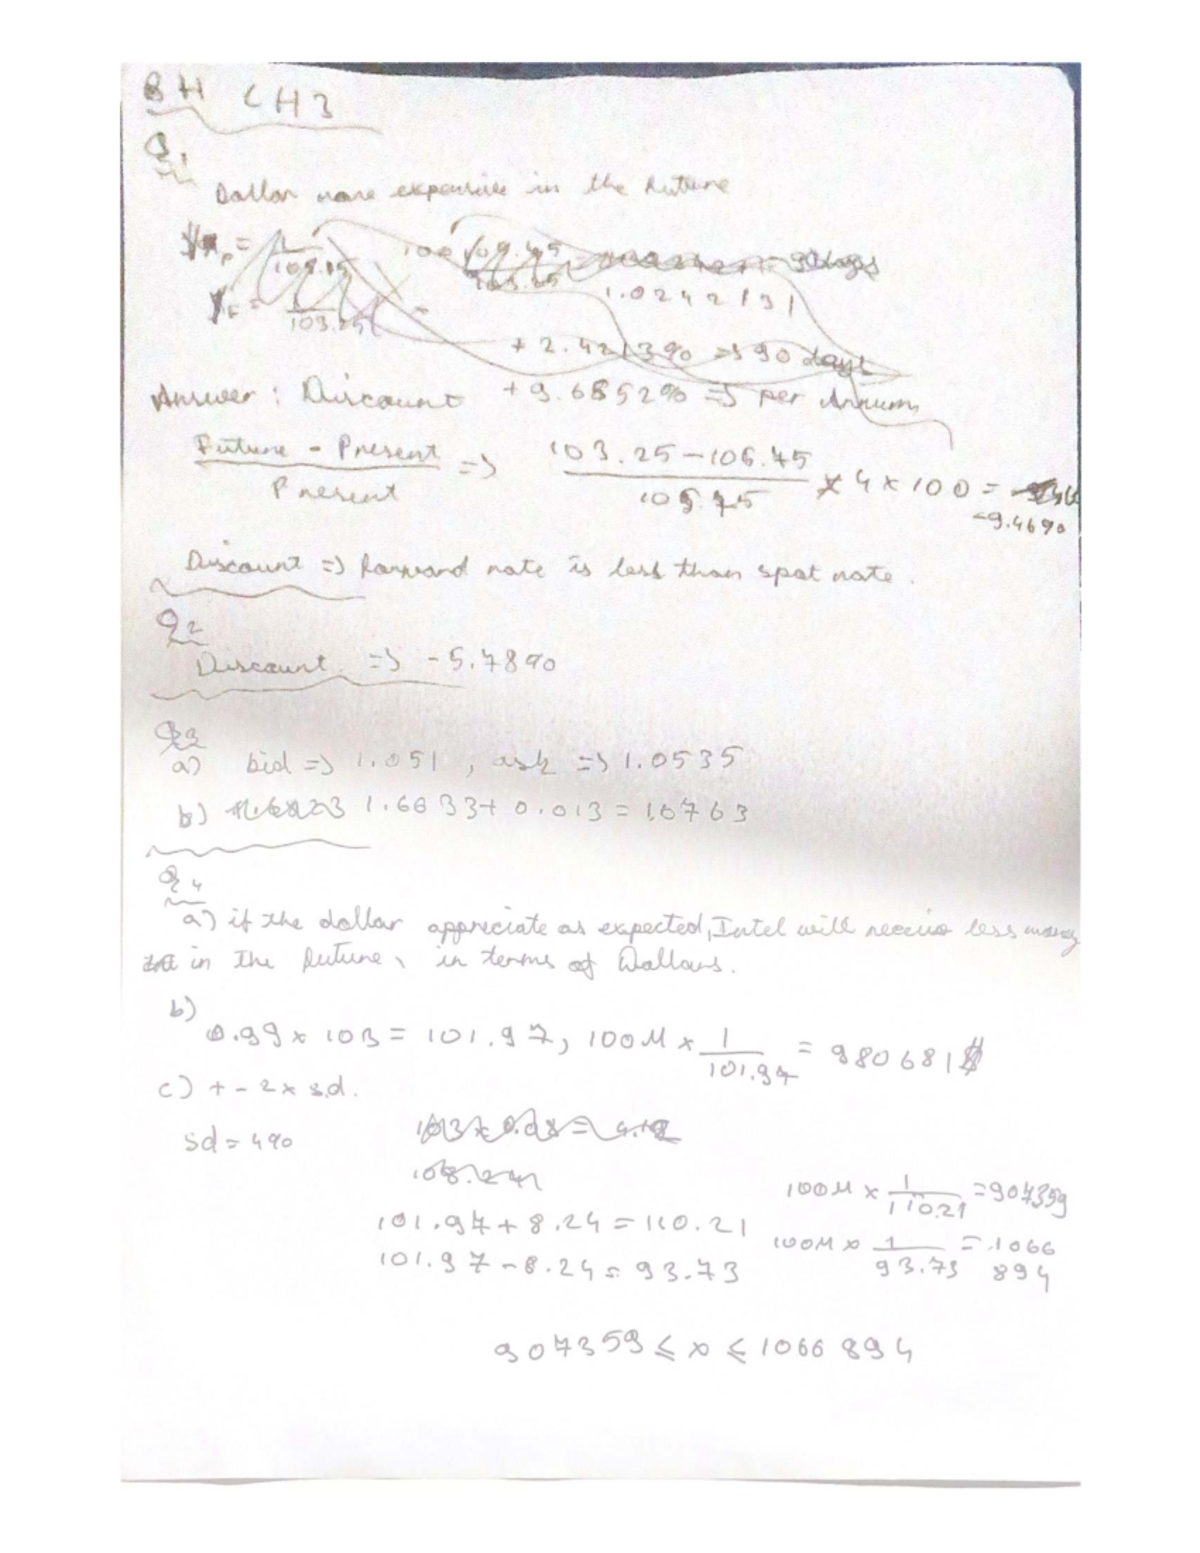 BH CH3
Q1
Dollar more expensive in the future
100
1.0242131
+ 2.4213% => 90 days
Answer: Discount + 9.6852% => per Annum
Future - Present / Present => 103.25-105.75 / 105.75 × 4 × 100 =
-9.46%
Discount => forward rate is less than spot rate.
Q2
Discount => -5.78%
Q3
a) bid => 1.051, ask => 1.0535
b) 1.6633+ 0.013 = 1.6763
Q4
a) if the dollar appreciate as expected, Intel will receive less money
in the future, in terms of Dollars.
b)
0.99 x 103 = 101.97, 100M x 1/101.97 = 980681$
c) + - 2 x s.d.
sd = 4%
100M x 1/110.21 = 907359
101.97 + 8.24 = 110.21
100M x 1/93.73 = 1066894
101.97 - 8.24 = 93.73
907359 ≤ x ≤ 1066894